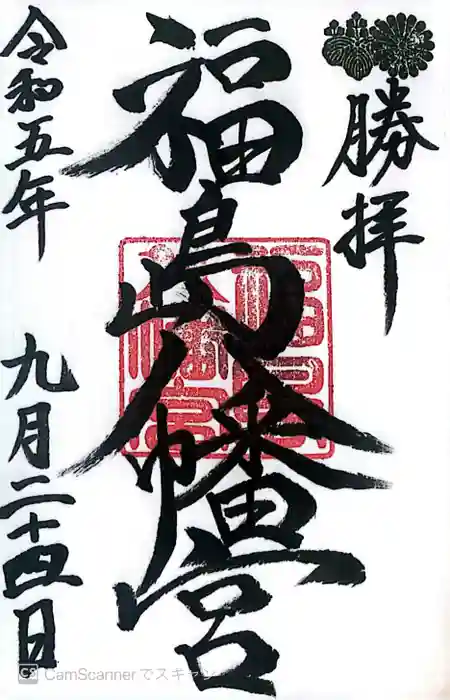 勝拝
福島八幡宮
令和五年
九月二十四日
CamScannerでスキャン